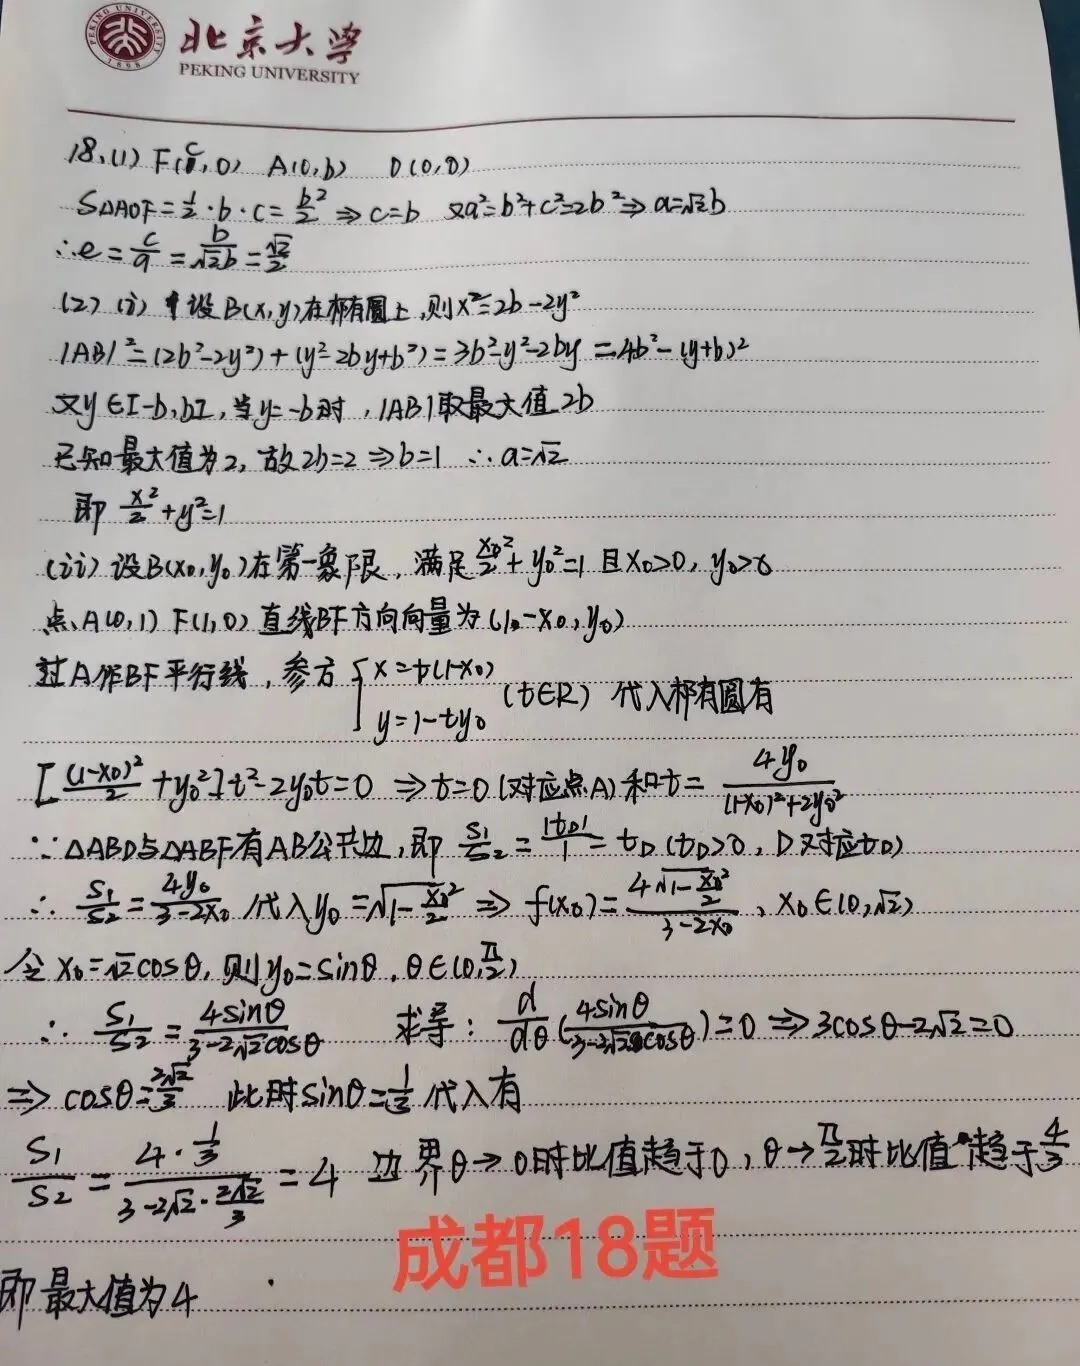 北京大学
PEKING UNIVERSITY
PEKING UNIVERSITY
1898
18、(1) F(c,0) A(0,b) O(0,0)
S△AOF=1/2·b·c=b²/2 ⇒ c=b 又a²=b²+c²=2b² ⇒ a=√2b
∴e=c/a=b/√2b=√2/2
(2)(i) 设B(x,y)在椭圆上,则x²=2b-2y²
|AB|²=(2b²-2y²)+(y²-2by+b²)=3b²-y²-2by=4b²-(y+b)²
又y∈[-b,b],当y=-b时,|AB|取最大值2b
已知最大值为2,故2b=2⇒b=1 ∴a=√2
即 x²/2+y²=1
(ii) 设B(x₀,y₀)在第一象限,满足x₀²/2+y₀²=1且x₀>0,y₀>0
点A(0,1) F(1,0) 直线BF方向向量为(1-x₀,y₀)
过A作BF平行线,参方{x=t(1-x₀) y=1-ty₀ (t∈R) 代入椭圆有
[(1-x₀)²/2+y₀²]t²-2y₀t=0 ⇒t=0(对应点A)和t=4y₀/((1-x₀)²+2y₀²)
∵△ABD与△ABF有AB公共边,即 S₁/S₂=|tD|/1=tD(tD>0,D对应tD)
∴ S₁/S₂=4y₀/(3-2x₀) 代入y₀=√(1-x₀²/2) ⇒ f(x₀)=4√(1-x₀²/2)/(3-2x₀), x₀∈(0,√2)
令x₀=√2cosθ,则y₀=sinθ,θ∈(0,π/2)
∴ S₁/S₂=4sinθ/(3-2√2cosθ) 求导: d/dθ(4sinθ/(3-2√2cosθ))=0⇒3cosθ-2√2=0
⇒ cosθ=2√2/3 此时sinθ=1/3代入有
S₁/S₂=4·1/3/(3-2√2·2√2/3)=4 边界θ→0时比值趋于0,θ→π/2时比值趋于4/3
成都18题
即最大值为4